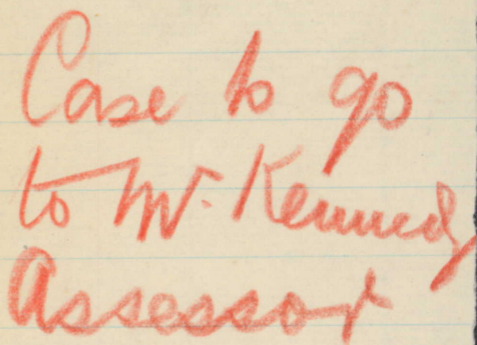 Case to go
to Mr. Kennedy
Assessor